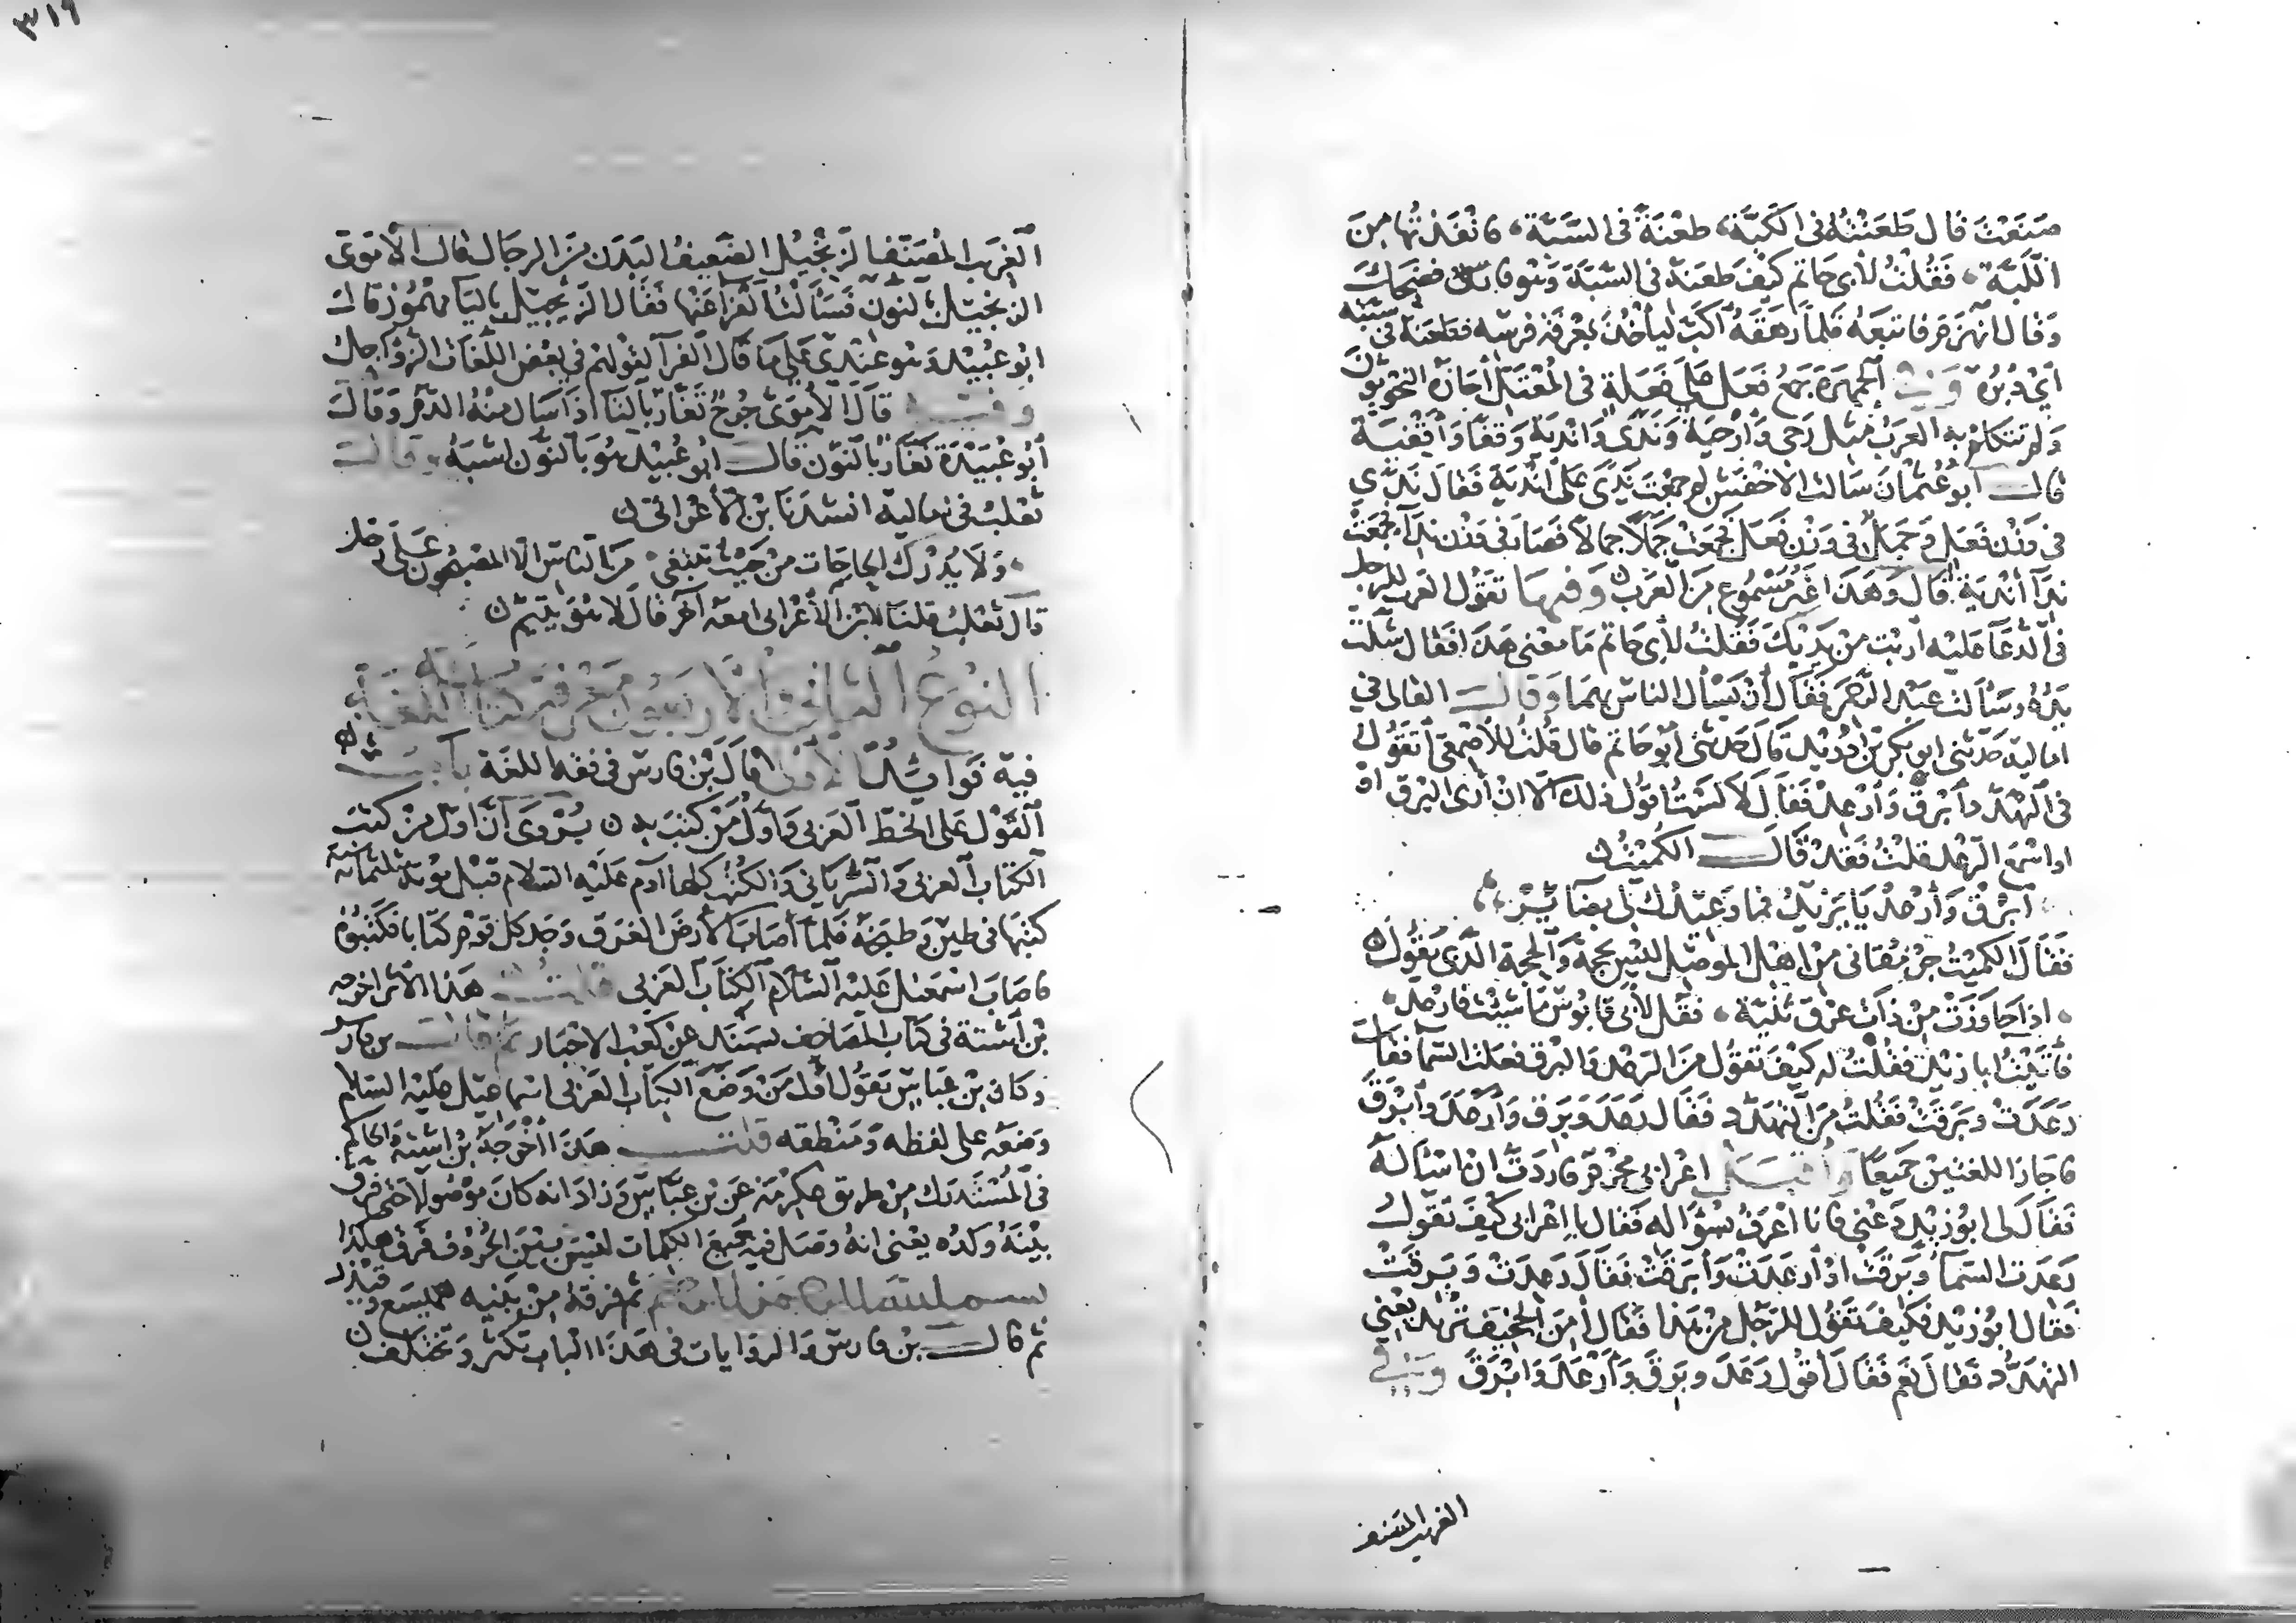 صنعت قال طعنته في الكبة، طعنة في السبة، فانفذتها من
اللبة، فقلت لأبي حاتم كيف طعنه في السبة وهو فارس فضحك
وقال انهزم فاتبعه فلما رهقه اكب ليأخذ بمعرفة فرسه فطعنه في سبته
أي دبره وفي الجمهرة جمع فعل على أفعلة في المعتل أجازه النحويون
ولم تتكلم به العرب مثل رحى وأرحية وندى واندية وقفا وأقفية
قال أبو عثمان سالت الاخفش لم جمعت ندى على اندية فقال ندى
في وزن فعل وجمل في وزن فعل فجمعت جملا جمالا فصار في وزن نداء فجمعت
نداء أندية قال وهذا غير مسموع من العرب وفيها تقول العرب للرجل
في الدعاء عليه أربت من يديك فقلت لأبي حاتم ما معنى هذا فقال شلت
يداه وسألت عبد الرحمن فقال أن يسأل الناس بهما وقال القالي في
اماليه حدثني ابو بكر بن دريد قال حدثني أبو حاتم قال قلت للأصمعي أتقول
في التهدد أبرق وأرعد فقال لا لست أقول ذلك الا ان أرى البرق او
او اسمع الرعد قلت فقد قال الكميت
ابرق وأرعد يا يزيد فما وعيدك لي بضائر
فقال الكميت جرمقاني من اهل الموصل ليس بحجة والحجة الذي يقول
اذا جاوزت من ذات عرق ثنية، فقل لأبي قابوس ما شئت فارعد
فأتيت ابا زيد فقلت له كيف تقول من الرعد والبرق فعلت السما فقال
رعدت وبرقت فقلت من التهدد فقال رعد وبرق وأرعد وأبرق
فاجاز اللغتين جميعا وأقبل اعرابي محرم فاردت ان اسأله
فقال لي ابو زيد دعني فانا اعرف بسؤاله فقال يا اعرابي كيف تقول
رعدت السماء وبرقت او أرعدت وأبرقت فقال رعدت وبرقت
فقال ابو زيد فكيف تقول للرجل من هذا فقال أمن الجخيف تريد يعني
التهدد فقال نعم فقال أقول رعد وبرق وأرعد وابرق وفي
الغريب المصنف
٣١٩
الغريب المصنف الزنجيل الضعيف البدن من الرجال قال الاموي
الزنجيل بالنون فسألت الفرا عنها فقال الزئجيل باليا مهموز قال
ابو عبيد وهو عندي على ما قال الفرا لقولهم في بعض اللغات الزؤاجل
وفيه قال الأموي جرح تغار بالتا اذا سال منه الدم وقال
أبو عبيدة نغار بالنون قال ابو عبيد هو بالنون اشبه وقال
ثعلب في اماليه انشدنا بن الأعرابي
ولا يدرك الحاجات من حيث تبتغى من الناس الا المصبحون على رجل
قال ثعلب قلنا لابن الأعرابي امعه آخر قال لا هو يتيم
النوع الثاني والاربعون معرفة كتابة اللغة
فيه فوائد الأولى قال بن فارس في فقه اللغة باب
القول على الخط العربي وأول من كتب به يروى أن اول من كتب
الكتاب العربي والسرياني والكتب كلها آدم عليه السلام قبل موته بثلثمائة سنة
كتبها في طين وطبخه فلما أصاب الأرض الغرق وجد كل قوم كتابا فكتبوه
فاصاب اسمعيل عليه السلام الكتاب العربي قلت هذا الأثر اخرجه
بن أشتة في كتاب المصاحف بسنده عن كعب الاحبار ثم قال بن فارس
وكان بن عباس يقول أول من وضع الكتاب العربي اسماعيل عليه السلام
وضعه على لفظه ومنطقه قلت هذا أخرجه بن اشته والحاكم
في المستدرك من طريق عكرمة عن بن عباس وزاد انه كان موصولا حتى فرق
بينه ولده يعني انه وصل فيه جميع الكلمات ليس بين الحروف فرق هكذا
بسم الله الرحمن الرحيم ثم فرقه من بنيه هميسع وقيذر
ثم قال بن فارس والروايات في هذا الباب تكثر وتختلف